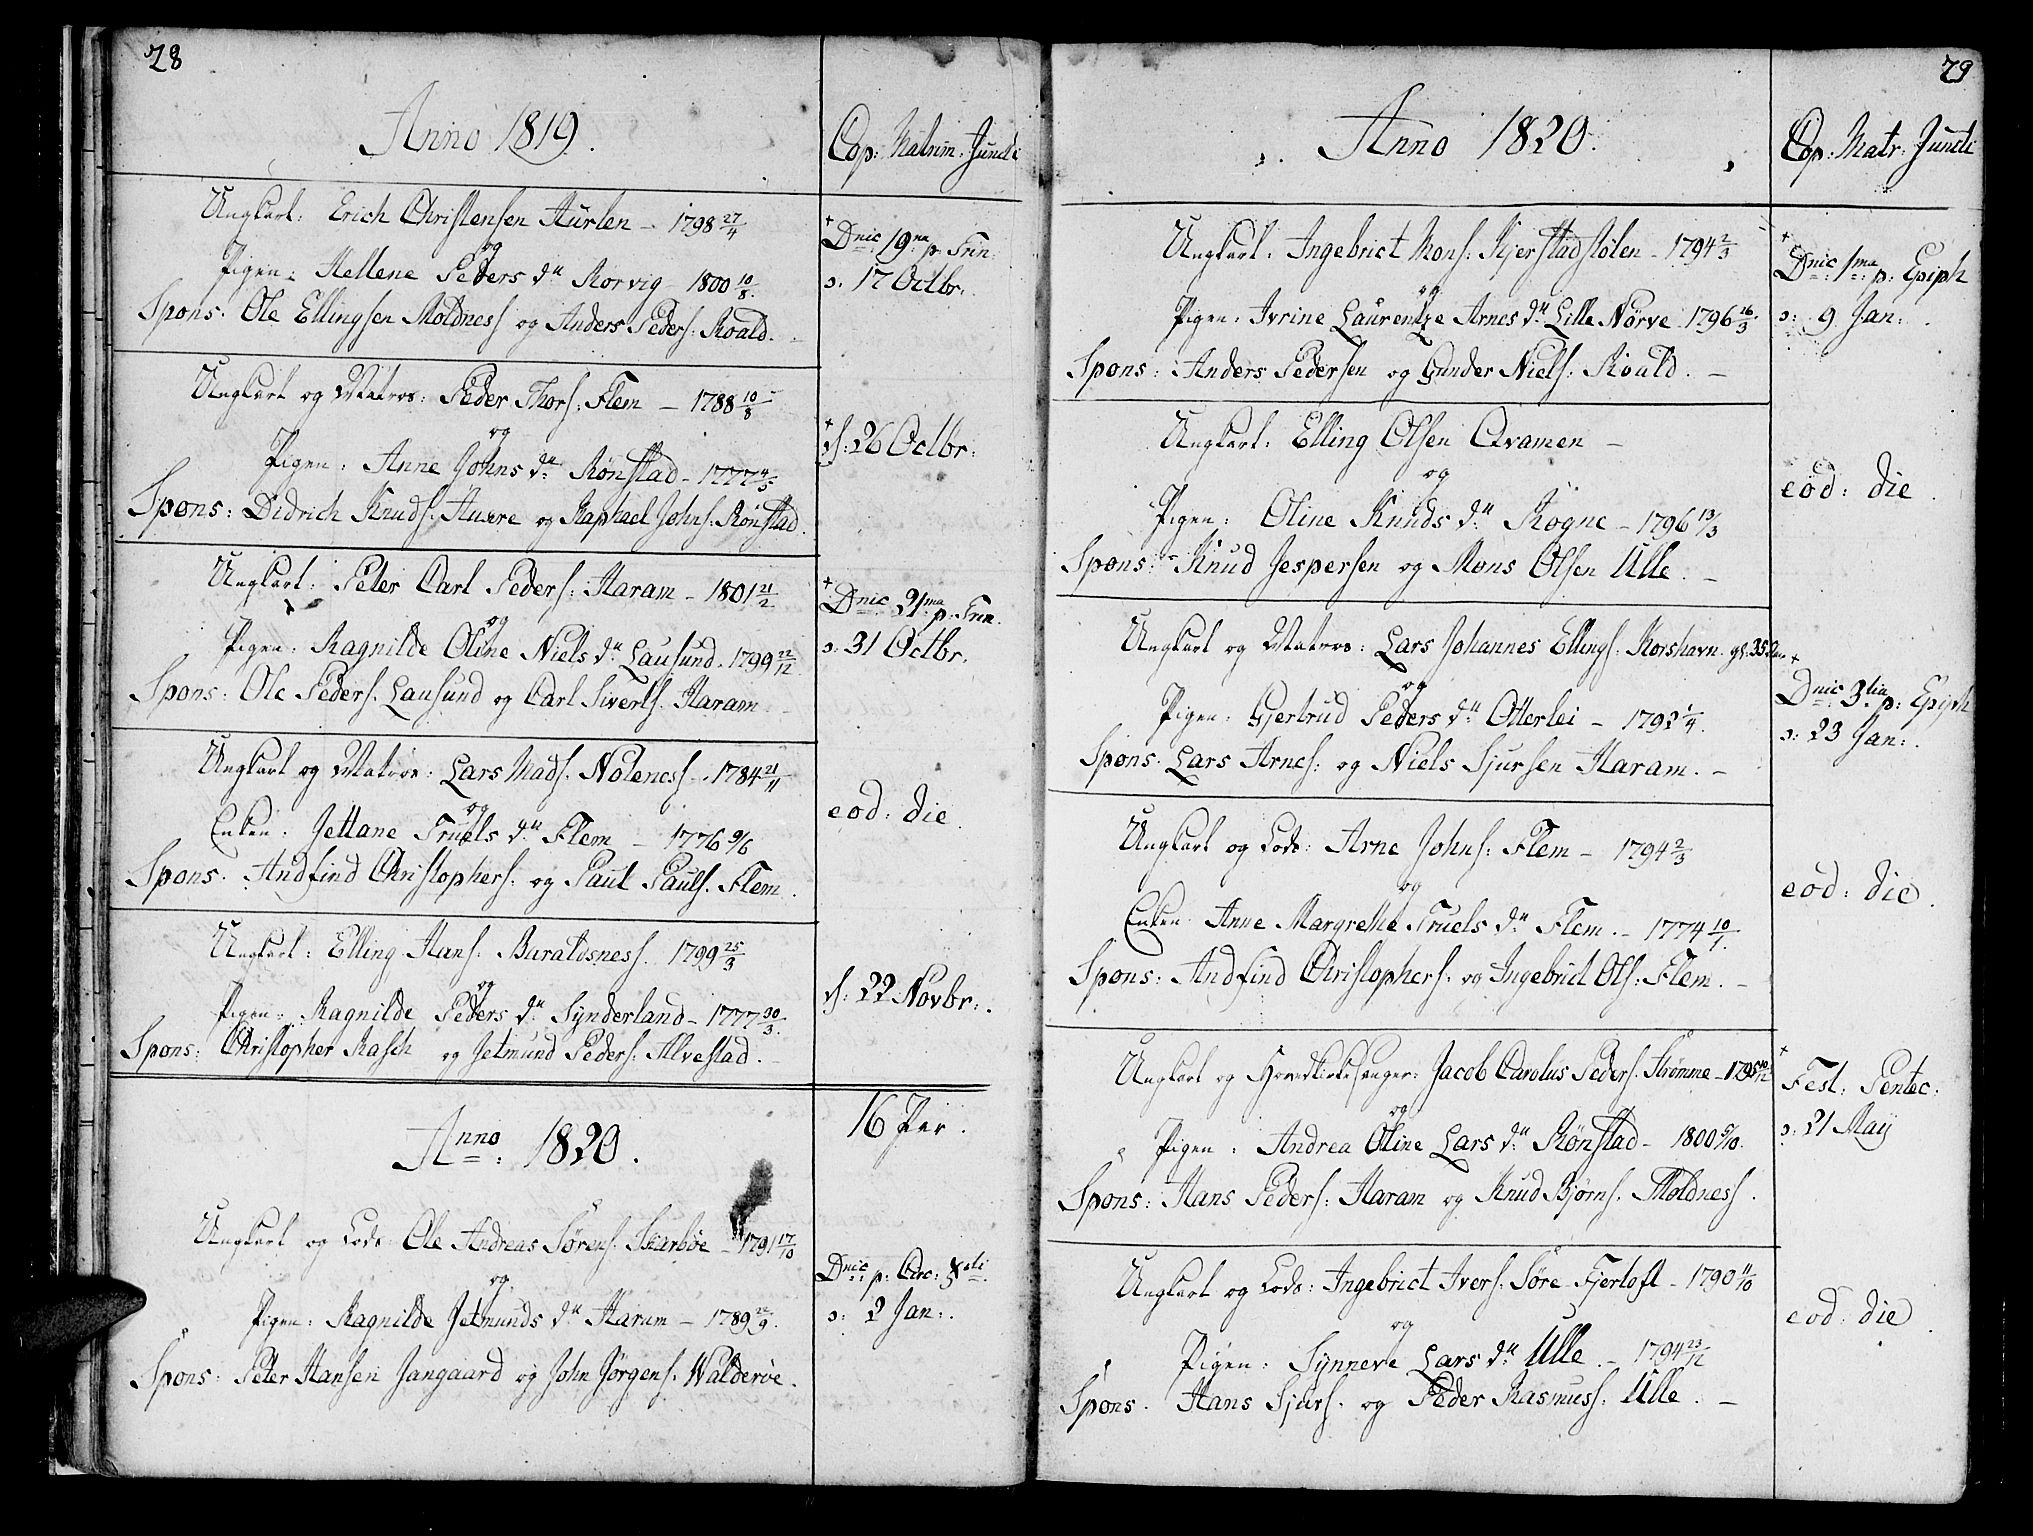 28
Anno 1819.
Cop: Matrim: Juncti
Ungkarl: Erich Christensen Aurlen - 1798 27/4
og
Pigen: Hellene Peders dr Rorvig - 1800 10/8.
Spons: Ole Ellingsen Moldness og Anders Peders: Roald.
+ Dnic 19na p. Trin:
ɔ: 17 Octbr:
Ungkarl og Matros: Peder Thors: Flem - 1788 10/8
og
Pigen: Anne Johns dr Rønstad - 1777 4/5
Spons: Didrich Knuds: Huxre og Raphael Johns: Rønstad.
+ d: 26 Octbr:
Ungkarl: Peter Carl Peders: Haram - 1801 21/2
og
Pigen: Ragnilde Oline Niels dr Lausund. 1799 22/12.
Spons: Ole Peders. Lausund og Carl Siverts. Haram
+ Dnic 21ma p: Trin.
ɔ: 31 Octbr.
Ungkarl og Matros: Lars Mads. Noleness - 1784 21/11
og
Enken: Jettane Truels dr Flem - 1776 9/6
Spons. Andfind Christophers: og Paul Pauls. Flem.
eod: die.
Ungkarl: Elling Hans. Buraldsness. 1799 25/3
og
Pigen: Ragnilde Peders dr Synderland - 1777 30/3.
Spons: Christopher Rasch og Jetmund Peders: Alvestad.
d: 22 Novbr:.
16 Par.
Anno: 1820.
Ungkarl og Lods Ole Andreas Sørens: Skarbøe - 1791 17/10
og
Pigen: Ragnilde Jetmunds dr Harum - 1789 22/9.
Spons: Peter Hansen Jangaard og John Jørgens. Walderøe.
Dnic p: Circ: Xsti
ɔ: 2 Jan:.
29
Anno 1820.
Cop: Matr: Juncti
Ungkarl: Ingebrict Mons: Kjerstadstølen - 1794 2/3
og
Pigen: Ivrine Laurentze Arnes dr Lille Nørve 1796 16/3
Spons: Anders Pedersen og Gunder Niels: Roald. -
+ Dnic 1ma p: Epiph
ɔ: 9 Jan:.
Ungkarl: Elling Olsen Qvamen -
og
Pigen: Oline Knuds dr Rogne - 1796 13/3
Spons: Knud Jespersen og Mons Olsen Ulle. -
eod: die.
Ungkarl og Matros: Lars Johannes Ellings: Korshavn. gl: 35 Aar
og
Pigen: Gjertrud Peders dr Otterlei - 1792 1/4.
Spons. Lars Arnes: og Niels Sjursen Haram. -
+ Dnic 3tia p: Epiph
ɔ: 23 Jan:.
Ungkarl og Lods: Arne Johns: Flem - 1794 2/3
og
Enken Anne Margrethe Truels dr Flem. - 1774 10/1.
Spons: Andfind Christophers. og Ingebrict Ols: Flem. -
eod: die.
Ungkarl og Hovedkirkesanger: Jacob Carolus Peders: Strømme - 1795 10/12
og
Pigen: Andrea Oline Lars dr Rønstad - 1800 5/10.
Spons: Hans Peders: Haram og Knud Bjørns. Moldness.
+ Fest: Pentec:
ɔ: 21 Maij
Ungkarl og Lods: Ingebrict Ivers. Søre Fjertoft - 1790 11/10
og
Pigen: Synneve Lars dr Ulle. - 1794 23/12
Spons. Hans Sjurs. og Peder Rasmuss: Ulle. -
eod: die.